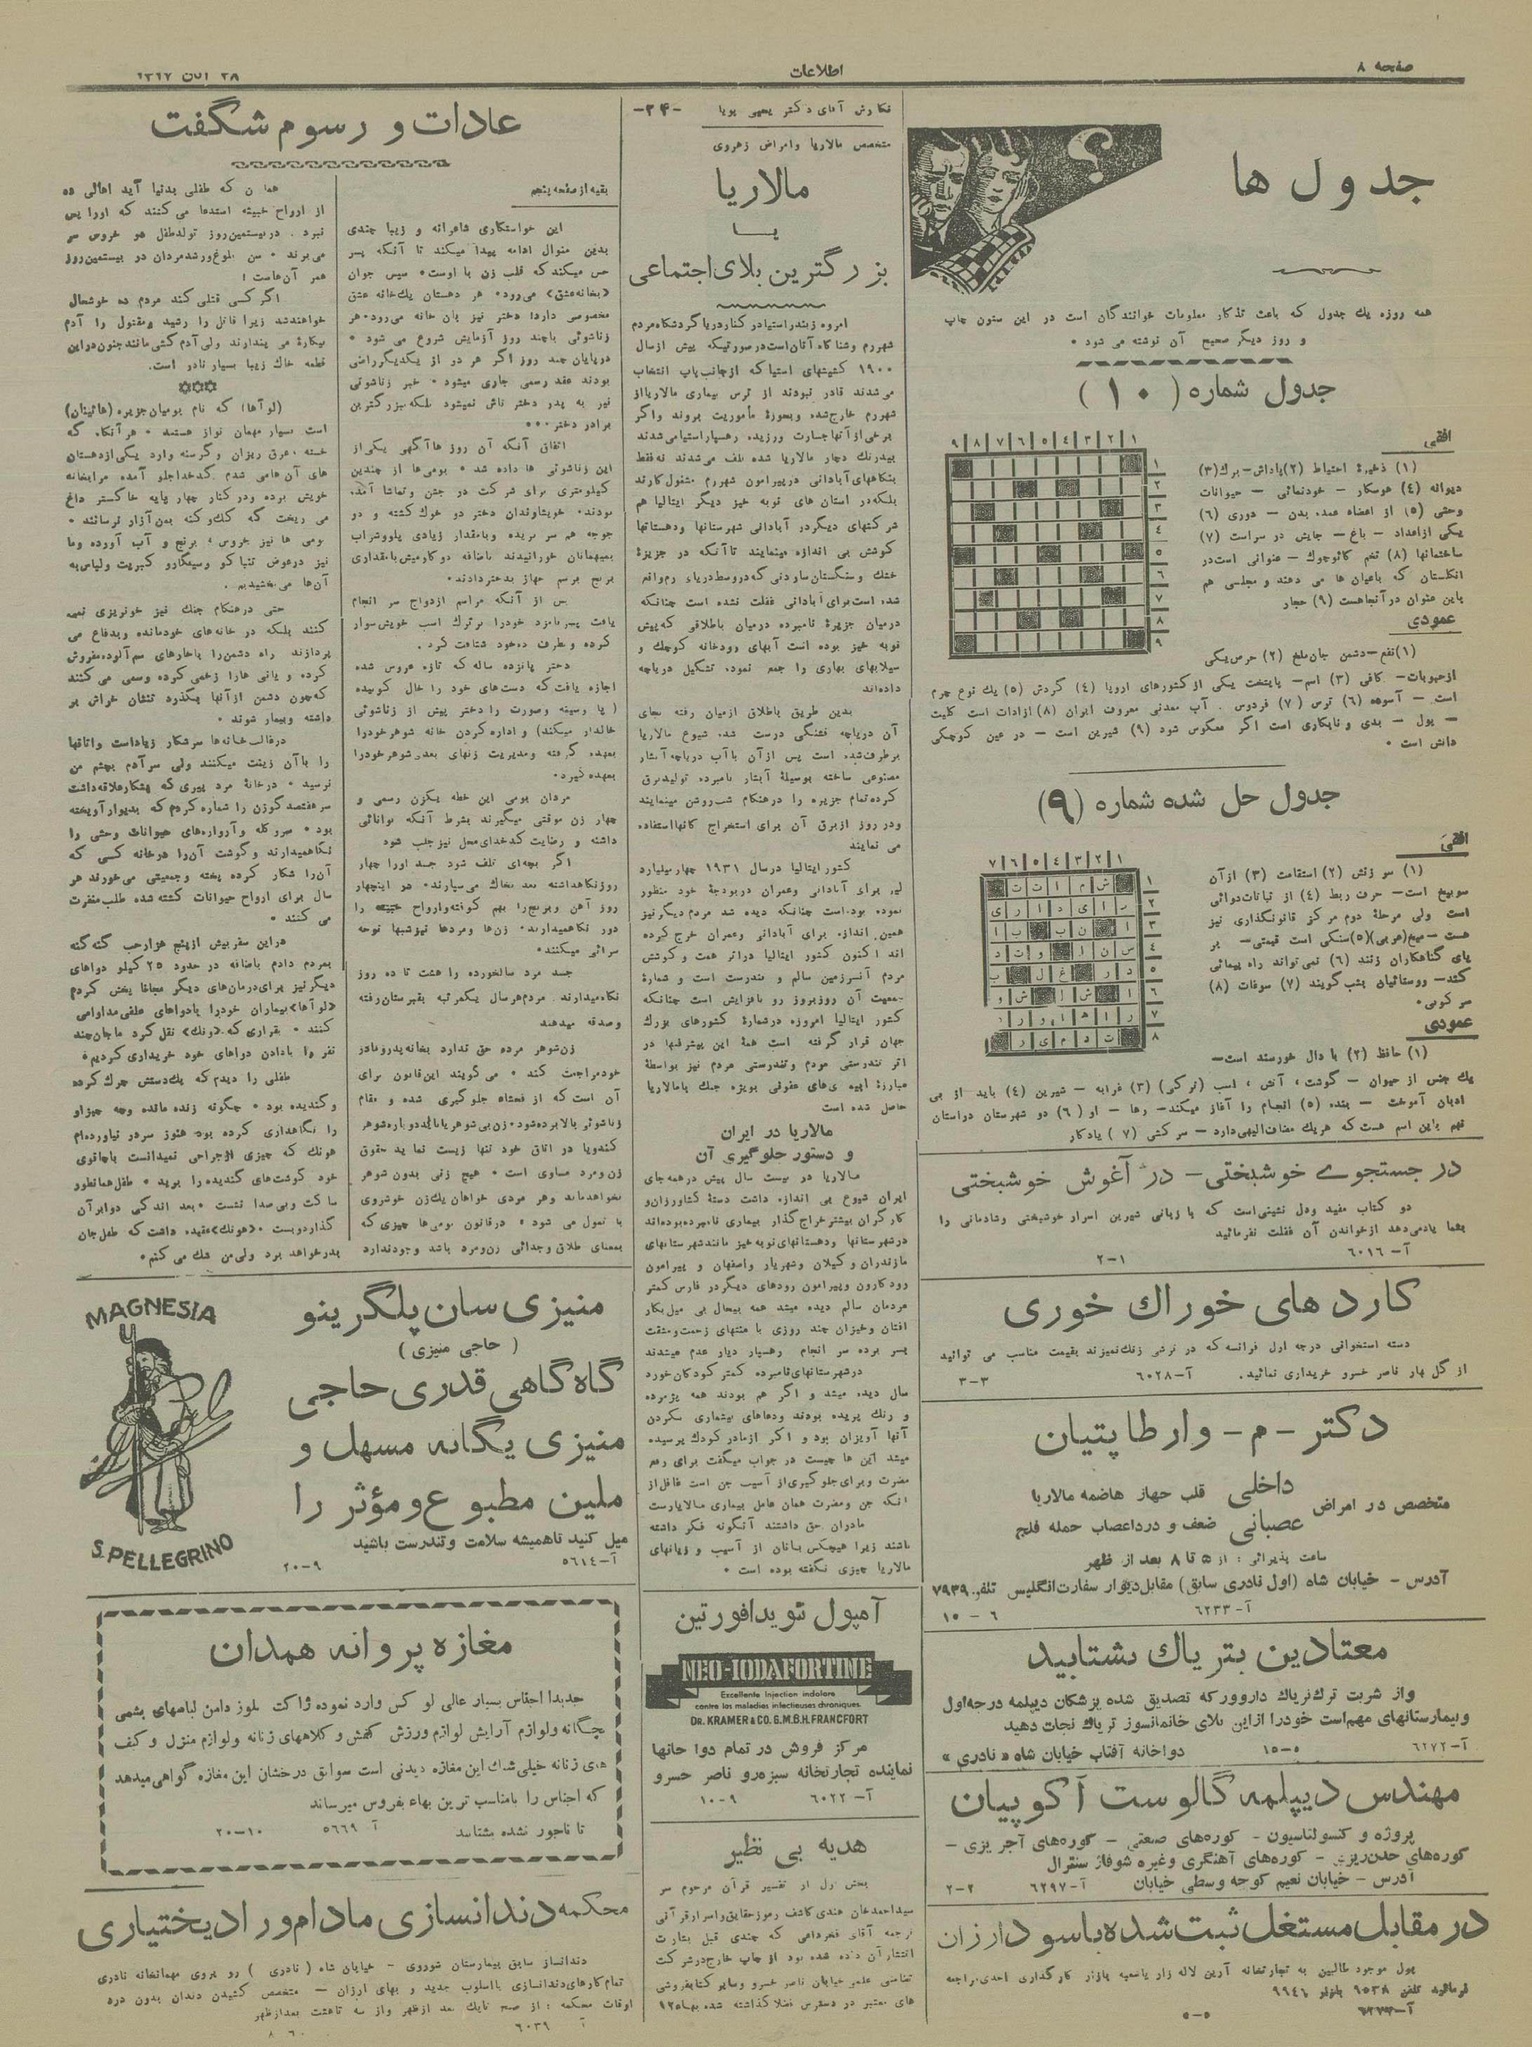 صفحه ۸
اطلاعات
۲۸ آبان ۱۳۱۷
جدول ها
همه روزه یك جدول که باعث تذکار معلومات خوانندگان است در این ستون چاپ
و روز دیگر صحیح آن نوشته می شود
جدول شماره (۱۰)
افقی
(۱) ذخیرهٔ احتیاط (۲) پاداش - برك (۳)
دیوانه (۴) هوسکار - خودنمائی - حیوانات
وحشی (۵) از اعضاء عمده بدن - دوری (۶)
یکی از اعداد - باغ - جایش دو سر است (۷)
ساختمانها (۸) تخم کائوچوك - عنوانی است در
انگلستان که باعیان ها می دهند و مجلسی هم
باین عنوان در آنجا هست (۹) حجار
عمودی
(۱) نفع - دشمن جان ملخ (۲) حرص یکی
از حبوبات - کافی (۳) اسم - پایتخت یکی از کشورهای اروپا (۴) گردش (۵) یك نوع چرم
است - آسوده (۶) ترس (۷) فردوس . آب معدنی معروف ایران (۸) از ادات است کلیت
- پول - بدی و ناپکاری است اگر معکوس شود (۹) شیرین است - در عین کوچکی
دانش است
جدول حل شده شماره (۹)
افقی
(۱) سر زنش (۲) استقامت (۳) از آن
سوبیخ است - حرف ربط (۴) از نباتات دوائی
است ولی مرحلهٔ دوم مرکز قانونگذاری نیز
هست - میخ (عربی) (۵) سنگی است قیمتی - بر
پای گناهکاران زنند (۶) نمی تواند راه پیمائی
کند - روستائیان بشب گویند (۷) سوقات (۸)
سر کوبی
عمودی
(۱) حافظ (۲) با دال خورسند است -
یك جنس از حیوان - گوشت ، آتش ، اسب (ترکی) (۳) قرابه - شیرین (۴) باید از بی
ادبان آموخت - بنده (۵) انجام را آغاز میکند - رها - او (۶) دو شهرستان در استان
نهم باین اسم هست که هر یك مضاف الیهی دارد - سر کشی (۷) یادکار
در جستجوی خوشبختی - در آغوش خوشبختی
دو کتاب مفید ودل نشینی است که با زبانی شیرین اسرار خوشبختی و شادمانی را
بشما یاد میدهد از خواندن آن غفلت نفرمائید
آ - ۶۰۱۶ ۲-۱
کارد های خوراك خوری
دسته استخوانی درجه اول فرانسه که در ترشی زنك نمیزند بقیمت مناسب می توانید
از گل بهار ناصر خسرو خریداری نمائید. آ-۶۰۲۸ ۳-۳
دکتر - م - وارطاپتیان
متخصص در امراض داخلی قلب جهاز هاضمه مالاریا
عصبانی ضعف و درد اعصاب حمله فلج
ساعت پذیرائی : از ۵ تا ۸ بعد از ظهر
آدرس - خیابان شاه (اول نادری سابق) مقابل دیوار سفارت انگلیس تلفن ۷۹۳۹
آ-۶۲۳۳ ۶-۱۵
معتادین بتریاك بشتابید
و از شربت ترك تریاك داروور که تصدیق شده پزشکان دیپلمه درجه اول
و بیمارستانهای مهم است خود را از این بلای خانمانسوز تریاك نجات دهید
آ-۶۲۷۲ ۵-۱۵ دواخانه آفتاب خیابان شاه « نادری »
مهندس دیپلمه گالوست آکوپیان
پروژه و کنسولتاسیون - کوره های صنعتی - کوره های آجر پزی -
کوره های چدن ریزی - کوره های آهنگری و غیره شوفاژ سنترال
آدرس - خیابان نعیم کوچه وسطی خیابان آ-۶۲۹۷ ۲-۲
در مقابل مستغل ثبت شده با سود ارزان
پول موجود طالبین به تجارتخانه آرین لاله زار پاساژ کارگذاری احدی مراجعه
فرمائید تلفن ۶۵۳۸ ۹۹۴۶
۵-۵
نگارش آقای دکتر یحیی پویا -۲۴-
متخصص مالاریا و امراض زهروی
مالاریا
یا
بزرگترین بلای اجتماعی
امروه زبندر استیا در کنار دریا گردشگاه مردم
شهر رم و شنا گاه آنان است در صورتیکه پیش از سال
۱۹۰۰ کشیشهای استیا که از جانب پاپ انتخاب
می شدند قادر نبودند از ترس بیماری مالاریا از
شهر رم خارج شده و بحوزهٔ مأموریت بروند و اگر
برخی از آنها جسارت ورزیده رهسپار استیا می شدند
بیدرنك دچار مالاریا شده تلف می شدند نه فقط
بنگاههای آبادانی در پیرامون شهر رم مشغول کارند
بلکه در استان های نوبه خیز دیگر ایتالیا هم
شرکتهای دیگر در آبادانی شهرستانها و دهستانها
کوشش بی اندازه مینمایند تا آنکه در جزیرهٔ
خشك و سنگستان ساردنی که در وسط دریای رم واقع
شده است برای آبادانی غفلت نشده است چنانکه
درمیان جزیرهٔ نامبرده درمیان باطلاقی که پیش
نوبه خیز بوده است آبهای رودخانه کوچك و
سیلابهای بهاری را جمع نموده تشکیل دریاچه
داده اند
بدین طریق باطلاق از میان رفته بجای
آن دریاچه قشنگی درست شد، شیوع مالاریا
برطرف شده است پس از آن با آب دریاچه آبشار
مصنوعی ساخته بوسیلهٔ آبشار نامبرده تولید برق
کرده تمام جزیره را در هنگام شب روشن مینمایند
و در روز از برق آن برای استخراج کانها استفاده
می نمایند
کشور ایتالیا در سال ۱۹۳۱ چهار میلیارد
لیر برای آبادانی و عمران در بودجهٔ خود منظور
نموده بود است چنانکه دیده شد مردم دیگر نیز
همین اندازه برای آبادانی و عمران خرج کرده
اند اکنون کشور ایتالیا در اثر همت و کوشش
مردم آنسرزمین سالم و تندرست است و شمارهٔ
جمعیت آن روز بروز رو بافزایش است چنانکه
کشور ایتالیا امروزه در شمارهٔ کشورهای بزرك
جهان قرار گرفته است همهٔ این پیشرفتها در
اثر تندرستی مردم و تندرستی مردم نیز بواسطهٔ
مبارزهٔ اپیدمی های عفونی بویژه جنك با مالاریا
حاصل شده است
مالاریا در ایران
و دستور جلوگیری آن
مالاریا در بیست سال پیش در همه جای
ایران شیوع بی اندازه داشت دستهٔ کشاورزان و
کارگران بیشتر خراج گذار بیماری نامبرده بوده اند
در شهرستانها و دهستانهای نوبه خیز مانند شهرستانهای
مازندران و گیلان و شهریار و اصفهان و پیرامون
رود کارون و پیرامون رودهای دیگر در فارس کمتر
مردمان سالم دیده میشد همه بیحال بی میل بکار
افتان و خیزان چند روزی با منتهای زحمت و مشقت
بسر برده سر انجام رهسپار دیار عدم میشدند
در شهرستانهای نامبرده کمتر کودکان خورد
سال دیده میشد و اگر هم بودند همه پژمرده
و رنك پریده بودند و دعاهای بیشماری بگردن
آنها آویزان بود و اگر از مادر کودك پرسیده
میشد این ها چیست در جواب میگفت برای رفع
مضرت و برای جلوگیری از آسیب جن است غافل از
آنکه جن و مضرت همان عامل بیماری مالاریاست
مادران حق داشتند آنگونه فکر داشته
باشند زیرا هیچکس بآنان از آسیب و زیانهای
مالاریا چیزی نگفته بوده است
آمپول نئویدافورتین
NEO-IODAFORTINE
Excellente Injection indolore
contre les maladies infectieuses chroniques
DR. KRAMER & CO. G.M.B.H. FRANCFORT
مرکز فروش در تمام دوا خانها
نماینده تجارتخانه سبزه رو ناصر خسرو
آ-۶۰۲۲ ۹-۱۰
هدیه بی نظیر
بخش اول از تفسیر قرآن مرحوم سر
سید احمد خان هندی کاشف رموز حقایق و اسرار قرآنی
ترجمه آقای فخرداعی که چندی قبل بشارت
انتشار آن داده شده بود از چاپ خارج در شرکت
تضامنی علمی خیابان ناصر خسرو و سایر کتابفروشی
های معتبر در دسترس فضلا گذاشته شده بهاء ۱۲
عادات و رسوم شگفت
بقیه از صفحه پنجم
این خواستگاری شاعرانه و زیبا چندی
بدین منوال ادامه پیدا میکند تا آنکه پسر
حس میکند که قلب زن با اوست . سپس جوان
«بخانه عشق» می رود . هر دهستان یك خانه عشق
مخصوصی دارد؛ دختر نیز بان خانه می رود . هر
زناشوئی باچند روز آزمایش شروع می شود .
در پایان چند روز اگر هر دو از یکدیگر راضی
بودند عقد رسمی جاری میشود . خبر زناشوئی
نیز به پدر دختر فاش نمیشود بلکه بزرگترین
برادر دختر ...
اتفاق آنکه آن روز ها آگهی یکی از
این زناشوئی ها داده شد . بومی ها از چندین
کیلومتری برای شرکت در جشن و تماشا آمده
بودند . خویشاوندان دختر دو خوك کشته و دو
جوجه هم سر بریده و بامقدار زیادی پلو و شراب
بمیهمانان خورانیدند باضافه دو گاومیش با مقداری
برنج برسم جهاز بدختر دادند .
پس از آنکه مراسم ازدواج سر انجام
یافت پسر نامزد خود را بر ترك اسب خویش سوار
کرده و بطرف ده خود شتافت کرد .
دختر پانزده ساله که تازه عروس شده
اجازه یافت که دست های خود را خال کوبیده
( پا و سینه و صورت را دختر پیش از زناشوئی
خالدار میکند) و اداره کردن خانه شوهر خود را
بعهده گرفته و مدیریت زنهای بعدی شوهر خود را
بعهده گیرد .
مردان بومی این خطه یکزن رسمی و
چهار زن موقتی میگیرند بشرط آنکه توانائی
داشته و رضایت کدخدای محل نیز جلب شود
اگر بچه ای تلف شود جسد او را چهار
روز نگاهداشته بعد بخاك می سپارند . در اینچهار
روز آهن و برنج را بهم کوفته و ارواح خبیثه را
دور نگاهمیدارند . زن ها و مردها نیز شبها نوحه
سرائی میکنند .
جسد مرد سالخورده را هشت تا ده روز
نگاه میدارند . مردم هر سال یکمرتبه بقبرستان رفته
و صدقه میدهند
زن شوهر مرده حق ندارد بخانه پدر و مادر
خود مراجعت کند . می گویند این قانون برای
آن است که از فحشاء جلوگیری شده و مقام
زناشوئی بالا برده شود . زن بی شوهر یا باید دوباره شوهر
کند و یا در اتاق خود تنها زیست نماید حقوق
زن و مرد مساوی است . هیچ زنی بدون شوهر
نخواهد ماند و هر مردی خواهان یك زن خوشروی
یا تمول می شود . در قانون بومی ها چیزی که
بمعنای طلاق و جدائی زن و مرد باشد وجود ندارد
همان که طفلی بدنیا آید اهالی ده
از ارواح خبیثه استدعا می کنند که او را پس
نبرد . در بیستمین روز تولد طفل دو خروس سر
می برند . سن بلوغ و رشد مردان در بیستمین روز
عمر آن هاست !
اگر کسی قتلی کند مردم ده خوشحال
خواهند شد زیرا قاتل را رشید و مقتول را آدم
بیکاره می پندارند ولی آدم کشی مانند جنون در این
قطعه خاك زیبا بسیار نادر است .
(لوآها) که نام بومیان جزیره (هائینان)
است بسیار مهمان نواز هستند . هر آنگاه که
خسته ، عرق ریزان و گرسنه وارد یکی از دهستان
های آن هامی شدم کدخدا جلو آمده مرا بخانه
خویش بوده و در کنار چهار پایه خاکستر داغ
می ریخت که كك و کنه بمن آزار نرسانند .
بومی ها نیز خروس ، برنج و آب آورده و ما
نیز در عوض تنباکو و سیگار و کبریت و لباس به
آن ها می بخشیدیم .
حتی در هنگام جنك نیز خونریزی نمی
کنند بلکه در خانه های خود مانده و بدفاع می
پردازند راه دشمن را باخارهای سم آلوده مفروش
کرده و پاهای ها را زخمی کرده و سعی می کنند
که چون دشمن از آنها بگذرد تنشان خراش بر
داشته و بیمار شوند .
در غالب خانه ها سر شکار زیاد است و اتاقها
را با آن زینت میکنند ولی سر آدم بچشم من
نرسید . در خانهٔ مرد پیری که بشکار علاقه داشت
سر هفتصد گوزن را شماره کردم که بدیوار آویخته
بود . سر و کله و آرواره های حیوانات وحشی را
نگاهمیدارند و گوشت آن را در خانه کسی که
آن را شکار کرده پخته و جمعیتی می خورند هر
سال برای ارواح حیوانات کشته شده طلب مغفرت
می کنند .
در این سفر بیش از پنج هزار حب گنه گنه
بمردم دادم باضافه در حدود ۲۵ کیلو دواهای
دیگر نیز برای درمان های دیگر مجانا پخش کردم
«لوآها» بیماران خود را با دواهای علفی مداوا می
کنند . بقراری که «ونك» نقل کرد ما جان چند
نفر را بادادن دواهای خود خریداری کردیم .
طفلی را دیدم که یك دستش چرك کرده
و گندیده بود . چگونه زنده مانده و چه چیز او
را نگاهداری کرده بود هنوز سر در نیاورده ام
هونك که چیزی از جراحی نمیدانست با چاقوی
خود گوشت های گندیده را برید . طفل همانطور
ساکت و بی صدا نشست . بعد اندکی دوا بر آن
گذارد و بست . «هونك» عقیده داشت که طفل جان
بدر خواهد برد ولی من شك می کنم .
MAGNESIA
S. PELLEGRINO
منیزی سان پلگرینو
( حاجی منیزی )
گاه گاهی قدری حاجی
منیزی یگانه مسهل و
ملین مطبوع و مؤثر را
میل کنید تا همیشه سلامت و تندرست باشید
آ-۵۶۱۴ ۹-۲۰
مغازه پروانه همدان
جدیدا اجناس بسیار عالی لوکس وارد نموده ژاکت بلوز دامن لباسهای پشمی
بچگانه و لوازم آرایش لوازم ورزش کفش و کلاههای زنانه و لوازم منزل و کیف
های زنانه خیلی شیك این مغازه دیدنی است سوابق درخشان این مغازه گواهی میدهد
که اجناس را بامناسب ترین بهاء بفروش میرساند
تا ناجور نشده بشتابید آ ۵۶۶۹ ۱۰-۲۰
محکمه دندانسازی مادام وراد بختیاری
دندانساز سابق بیمارستان شوروی - خیابان شاه ( نادری ) رو بروی مهمانخانه نادری
تمام کارهای دندانسازی بااسلوب جدید و بهای ارزان - متخصص کشیدن دندان بدون درد
اوقات محکمه : از صبح تا یك بعد از ظهر و از سه تا هشت بعد از ظهر
آ ۶۰۳۹